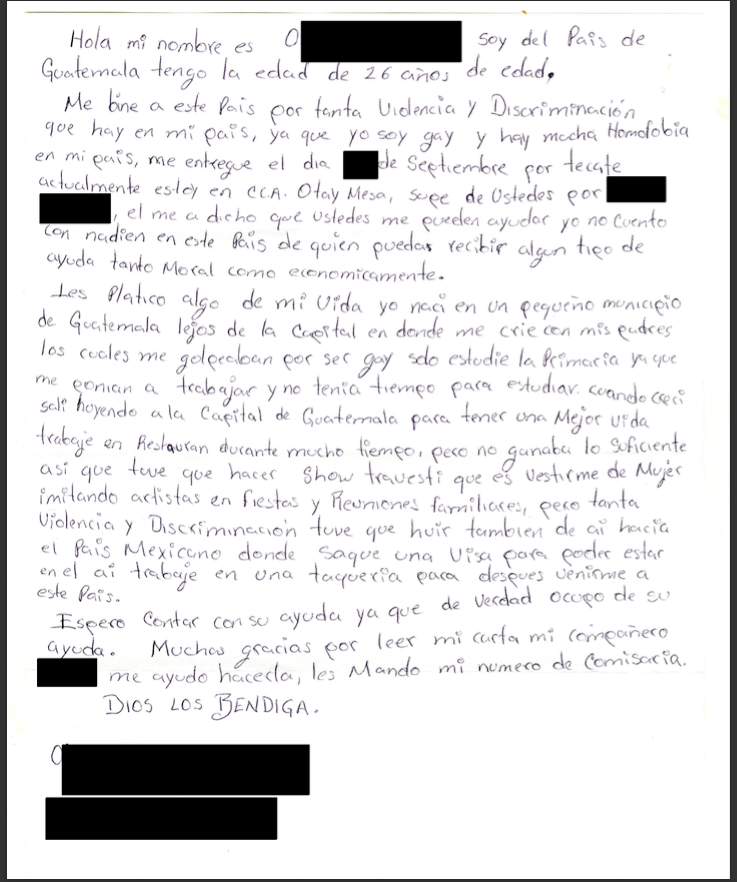 Hola mi nombre es O
soy del Pais de
Guatemala tengo la edad de 26 años de edad.
Me bine a este Pais por tanta Violencia y Discriminación
que hay en mi pais, ya que yo soy gay y hay mucha Homofobia
en mi pais, me entregue el dia de Septiembre por tecate
actualmente estoy en CCA. Otay Mesa, supe de Ustedes por
, el me a dicho que ustedes me pueden ayudar yo no cuento
con nadien en este Pais de quien puedas recibir algun tipo de
ayuda tanto Moral como economicamente.
Les Platico algo de mi Vida yo naci en un pequeño municipio
de Guatemala lejos de la Capital en donde me crie con mis padres
los cuales me golpeaban por ser gay solo estudie la Primaria ya que
me ponian a trabajar y no tenia tiempo para estudiar. cuando creci
sali huyendo a la Capital de Guatemala para tener una Mejor vida
trabaje en Restauran durante mucho tiempo, pero no ganaba lo suficiente
asi que tuve que hacer Show travesti que es Vestirme de Mujer
imitando artistas en fiestas y Reuniones familiares, pero tanta
Violencia y Discriminacion tuve que huir tambien de ai hacia
el Pais Mexicano donde saque una Visa para poder estar
en el ai trabaje en una taqueria para despues venirme a
este Pais.
Espero Contar con su ayuda ya que de verdad ocupo de su
ayuda. Muchas gracias por leer mi carta mi compañero
me ayudo hacerla, les Mando mi numero de Comisaria.
DIOS LOS BENDIGA.
O